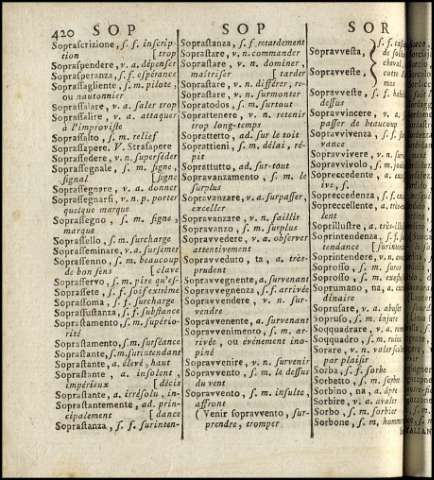 420 SOP SOP SOR
Soprascrizione, s. f. inscrip-
tion [trop
Sopraspendere, v. a. dépenser
Sopraspéranza, s. f. espérance
Soprassagliente, s. m. pilote,
ou nautonnier
Soprassalare, v. a. saler trop
Soprassalire, v. a. attaquer
à l'improviste
Soprassalto, s. m. relief
Soprassapere. V. Strasapere
Soprassedere, v. n. superséder
Soprassegnale, s. m. signe,
signal [signe
Soprassegnare, v. a. donner
Soprassegnarsi, v. n. p. porter
quelque marque
Soprassegno, s. m. signe,
marque
Soprassello, s. m. surcharge
Sopraseminare, v. a. sursemer
Soprassenno, s. m. beaucoup
de bon sens [clave
Soprasservo, s. m. pire qu'es-
Soprassete, s. f. soif extrême
Soprassoma, s. f. surcharge
Soprassustanza, s. f. substance
Soprastamento, s. m. supério-
rité
Soprastamento, s. m. surséance
Soprastante, s. m. surintendant
Soprastante, a. élevé, haut
Soprastante, a. insolent,
impérieux [décis
Soprastante, a. irrésolu, in-
Soprastantemente, ad. prin-
cipalement [dance
Soprastanza, s. f. surinten-
Soprastanza, s. f. retardement
Soprastare, v. n. commander
Soprastare, v. n. dominer,
maîtriser [tarder
Soprastare, v. n. différer, re-
Soprastare, v. n. surmonter
Sopratodos, s. m. surtout
Soprattenere, v. n. retenir
trop long-temps
Soprattetto, ad. sur le toit
Soprattieni, s. m. délai, ré-
pit
Soprattutto, ad. sur-tout
Sopravanzamento, s. m. le
surplus
Sopravanzare, v. a. surpasser,
exceller
Sopravanzare, v. n. saillir
Sopravanzo, s. m. surplus
Sopravvedere, v. a. observer
attentivement
Sopravveduto, ta, a. très-
prudent
Sopravvegnente, a. survenant
Sopravvegnenza, s. f. arrivée
Sopravvendere, v. n. sur-
vendre
Sopravvenente, a. survenant
Sopravvenimento, s. m. ar-
rivée, ou événement ino-
piné
Sopravvenire, v. n. survenir
Sopravvento, s. m. le dessus
du vent
Sopravvento, s. m. insulte,
affront
(Venir sopravvento, sur-
prendre, tromper
Sopravvesta,
Sopravveste,
Sopravveste, s. f.
dessus
Sopravvincere, v. a.
passer de beaucoup
Sopravvivenza, s. f.
vance
Sopravvivere, v. n.
Sopravvivolo, s. m.
Sopreccedente, a.
ive, f.
Sopreccellente, a.
lent
Soprillustre, a.
Soprintendenza, s. f.
tendance
Soprintendere, v. n.
Soprosso, s. m.
Soprosso, s. m.
Soprumano, na, a.
dinaire
Soprusare, v. a. abuser
Sopruso, s. m. injure
Soqquadrare, v. a.
Soqquadro, s. m. ruine
Sorare, v. n. voler
par plaisir
Sorba, s. f. sorbe
Sorbetto, s. m.
Sorbino, na, a.
Sorbire, v. a. avaler
Sorbo, s. m. sorbier
Sorbone, s. m.